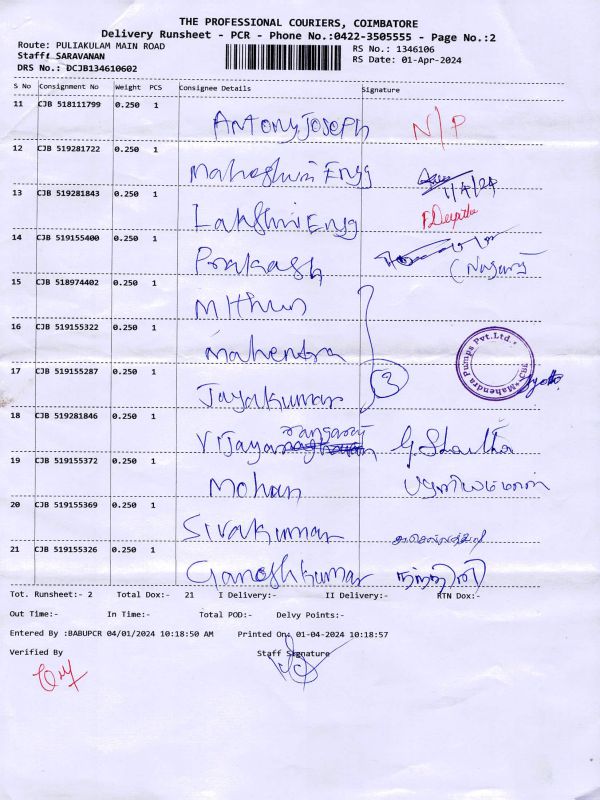 THE PROFESSIONAL COURIERS, COIMBATORE
Delivery Runsheet - PCR - Phone No.:0422-3505555 - Page No.:2
Route: PULIAKULAM MAIN ROAD RS No.: 1346106
Staff: SARAVANAN RS Date: 01-Apr-2024
DRS No.: DCJB134610602
S No Consignment No Weight PCS Consignee Details Signature
11 CJB 518111799 0.250 1 Antony Joseph N/P
12 CJB 519281722 0.250 1 Maheshwari Engg 1/4/24
13 CJB 519281843 0.250 1 Lakshmi Engg P. Deeptha
14 CJB 519155400 0.250 1 Prakash
15 CJB 518974402 0.250 1 Mithun
16 CJB 519155322 0.250 1 Mahendra Mahendra Pumps Pvt.Ltd. CBE
17 CJB 519155287 0.250 1 Jayakumar 3 Jyothi
18 CJB 519281846 0.250 1 Vijaya
19 CJB 519155372 0.250 1 Mohan பழனியம்மாள்
20 CJB 519155369 0.250 1 Sivakumar
21 CJB 519155326 0.250 1 Ganeshkumar நந்தினி
Tot. Runsheet:- 2 Total Dox:- 21 I Delivery:- II Delivery:- RTN Dox:-
Out Time:- In Time:- Total POD:- Delvy Points:-
Entered By :BABUPCR 04/01/2024 10:18:50 AM Printed On: 01-04-2024 10:18:57
Verified By Staff Signature